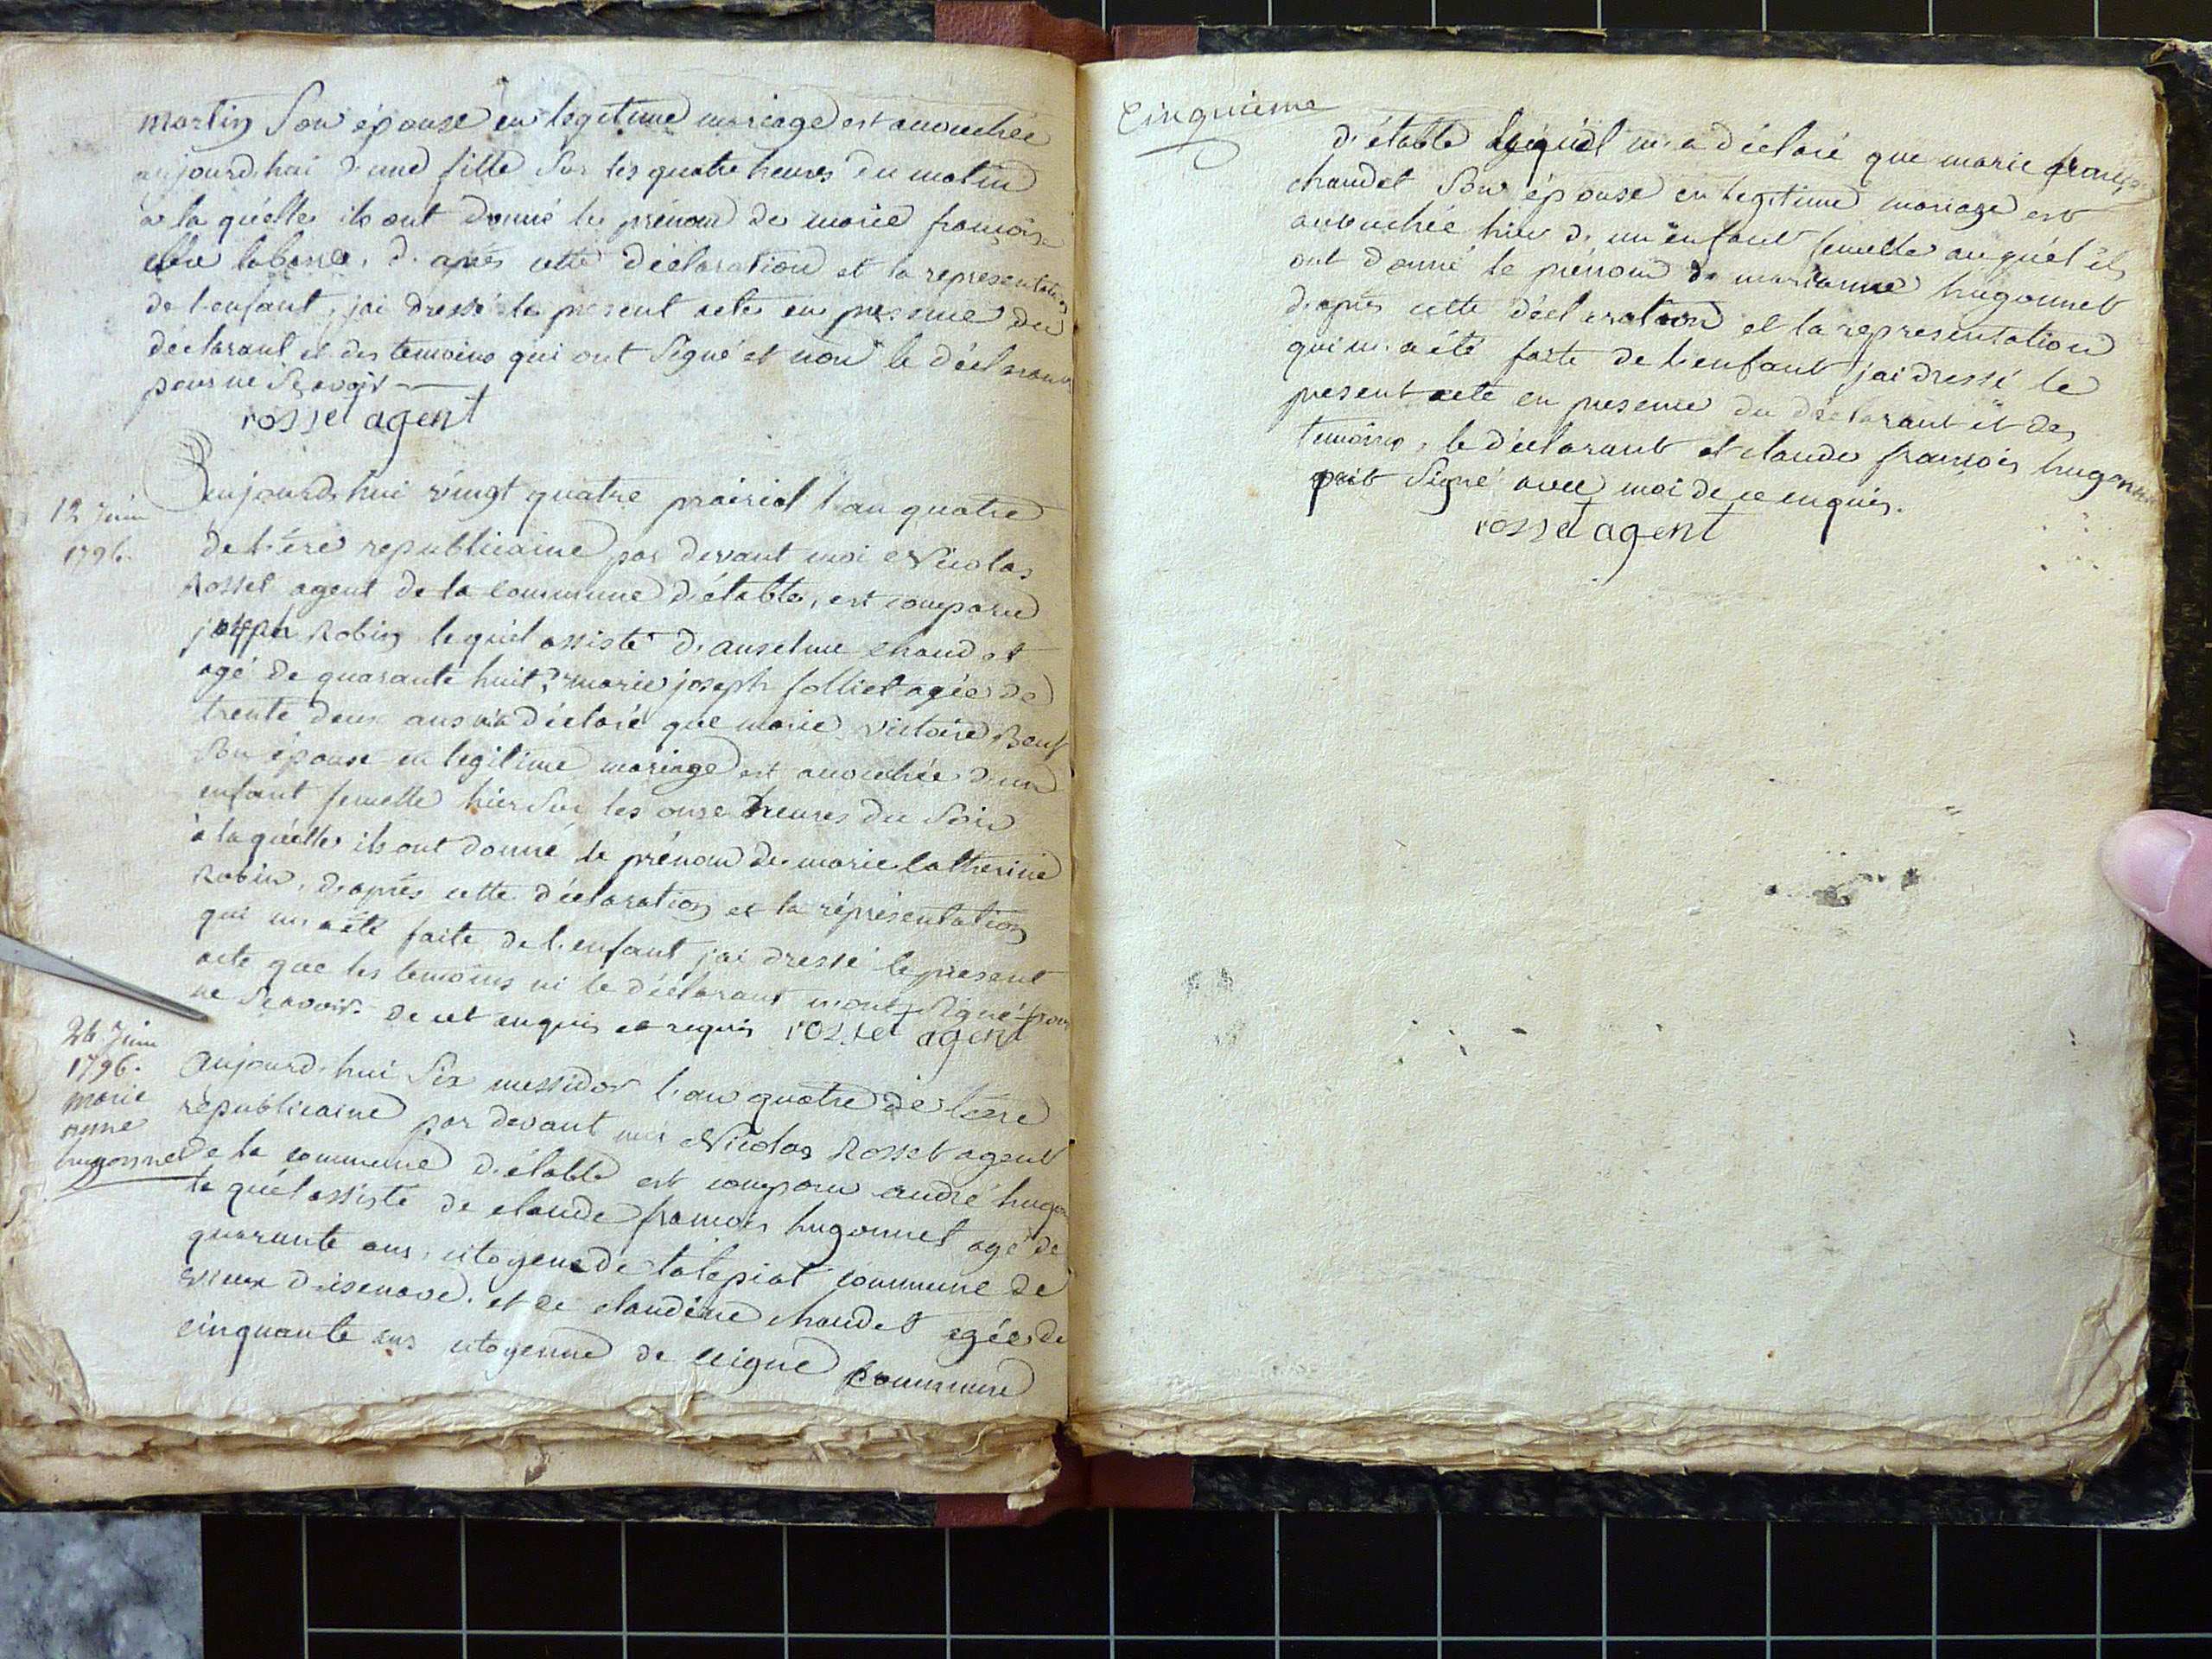 martin Son épouse en legitime mariage est accouchée
aujourd'hui d'une fille Sur les quatre heures du matin
a la quélle ils ont donné le prénom de marie françoise
d'aprés cette déclaration et la representation
de l'enfant, jai dressé le present acte en presence du
déclarant et des temoins qui ont Signé et non le déclarant
pour ne Sçavoir
rosset agent
12 Juin
1796.
aujourd'hui vingt quatre prairial l'an quatre
de l'ére republicaine par devant moi Nicolas
Rosset agent de la commune d'étable, est comparu
joseph Robin lequel assisté d'anselme chaudet
agé de quarante huit, marie joseph folliet agée de
trente deux ans m'a déclaré que marie victoire
Son épouse en legitime mariage est accouchée d'un
enfant femelle hier Sur les onze heures du Soir
à laquélle ils ont donné le prénom de marie Catherine
Robin, d'aprés cette déclaration et la réprésentation
qui m'a été faite de l'enfant jai dressé le present
acte que les temoins ni le déclarant n'ont Signé pour
ne Sçavoir de cet enquis et requis rosset agent
26 Juin
1796.
marie
anne
hugonnet
aujourd'hui Six messidor l'an quatre de l'ére
républicaine par devant moi Nicolas Rosset agent
de la commune d'étable est comparu andré hugonnet
le quél assisté de claude francois hugonnet agé de
quarante ans, citoyens de commune de
vieux d'isenave. et de claudine chaudet agée de
cinquante ans citoyenne de ceigne commune
Cinquieme
d'étable lequél m'a déclaré que marie françoise
chaudet Son épouse en legitime mariage est
accouchée hier d'un enfant femelle auquél ils
ont donné le prénom de marianne hugonnet
d'aprés cette déclaration et la representation
qui m'a été faite de l'enfant jai dressé le
present acte en presence du déclarant et des
temoins, le déclarant et claude françois hugonnet
ont Signé avec moi de ce enquis.
rosset agent